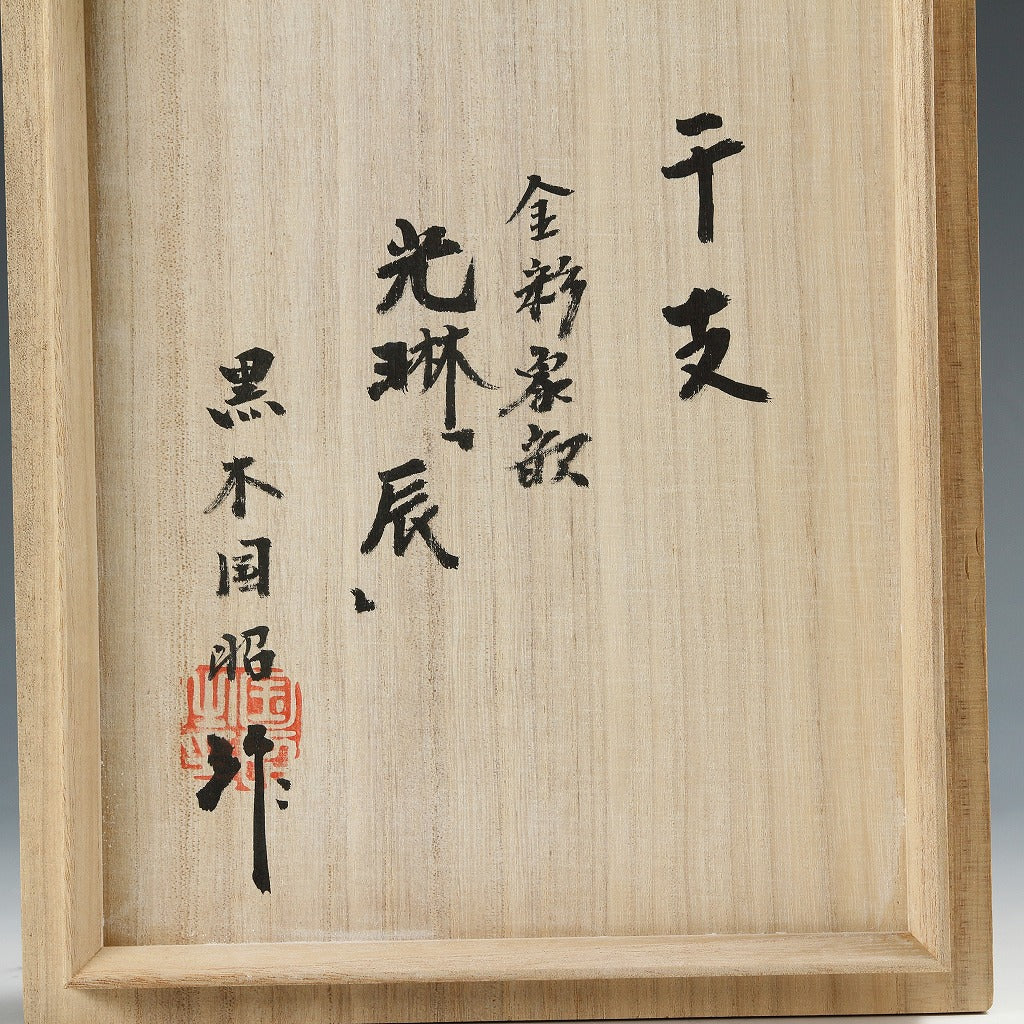 干支
金彩象嵌
光琳「辰」
黒木国昭作